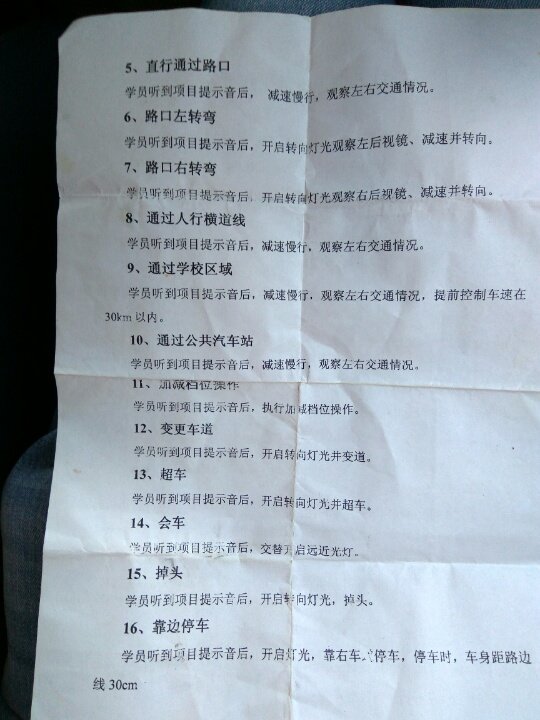 5、直行通过路口
学员听到项目提示音后， 减速慢行，观察左右交通情况。
6、路口左转弯
学员听到项目提示音后，开启转向灯光观察左后视镜、减速并转向。
7、路口右转弯
学员听到项目提示音后，开启转向灯光观察右后视镜、减速并转向。
8、通过人行横道线
学员听到项目提示音后，减速慢行，观察左右交通情况。
9、通过学校区域
学员听到项目提示音后，减速慢行，观察左右交通情况，提前控制车速在
30km 以内。
10、通过公共汽车站
学员听到项目提示音后，减速慢行，观察左右交通情况。
11、加减档位操作
学员听到项目提示音后，执行加减档位操作。
12、变更车道
学员听到项目提示音后，开启转向灯光并变道。
13、超车
学员听到项目提示音后，开启转向灯光并超车。
14、会车
学员听到项目提示音后，交替开启远近光灯。
15、掉头
学员听到项目提示音后，开启转向灯光，掉头。
16、靠边停车
学员听到项目提示音后，开启灯光，靠右车式停车，停车时，车身距路边
线 30cm